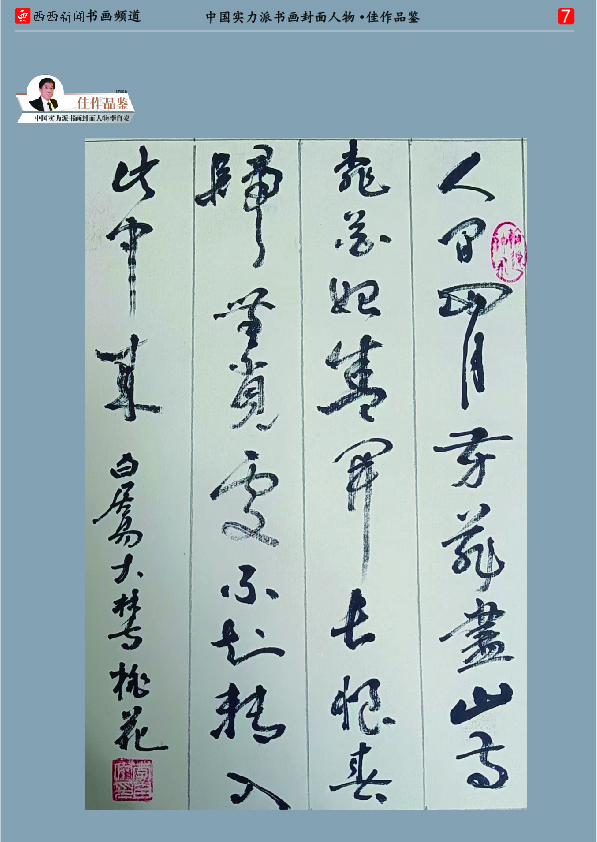 西西新闻书画频道
中国实力派书画封面人物·佳作品鉴
7
佳作品鉴
中国实力派书画封面人物李自
人间四月芳菲盡山寺
桃花始盛开长恨春
歸無覓處不知轉入
此中来 白居易大林寺桃花